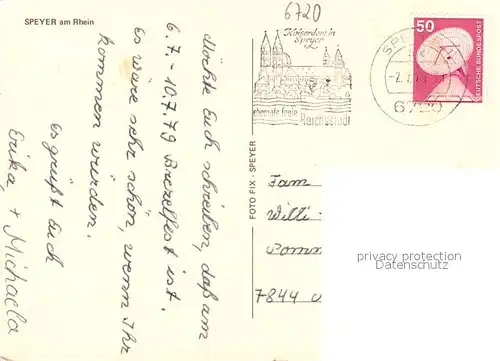 SPEYER am Rhein
6720
Kaiserdom in
Speyer
ehemals freie
Reichsstadt
SPEYER
6720
50
DEUTSCHE BUNDESPOST
möchte Euch schreiben, daß am
6.7. - 10.7.79 Brezelfest ist.
Es wäre sehr schön, wenn Ihr
kommen würden.
Es grüßt Euch
Erika, + Michaela
FOTO FIX - SPEYER
Fam
Willi
Pomm
7844
privacy protection
Datenschutz